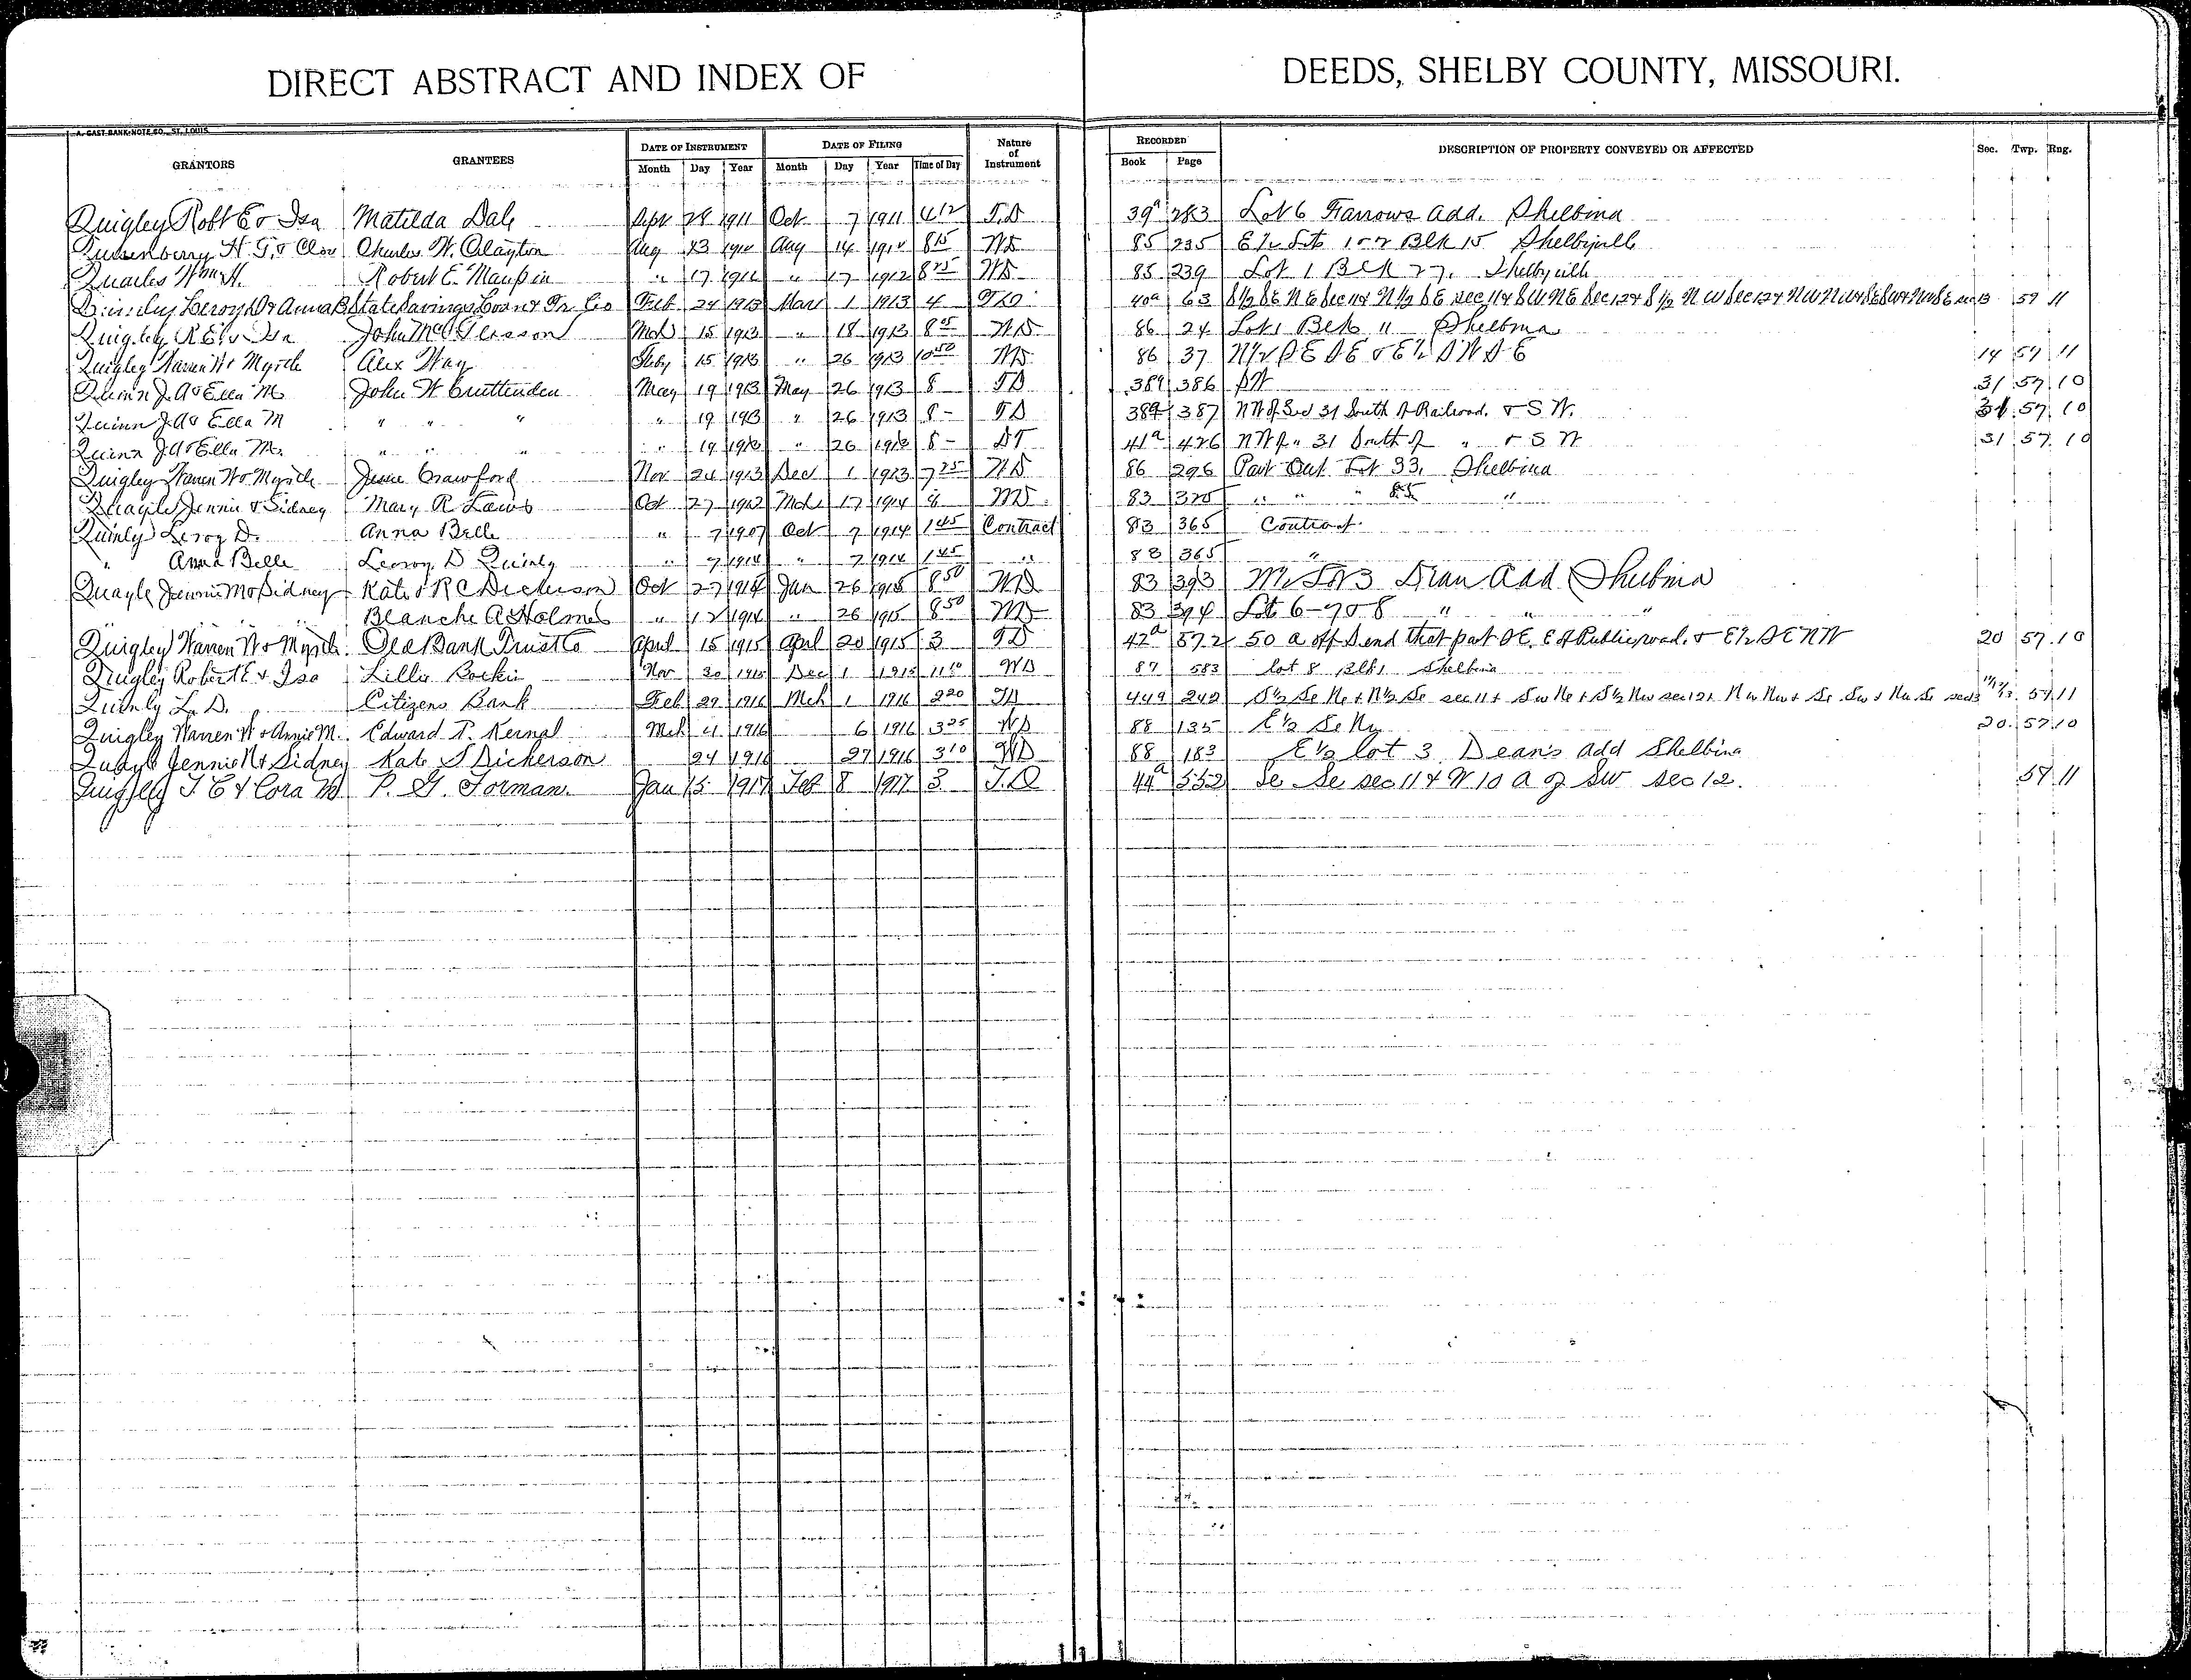 DIRECT ABSTRACT AND INDEX OF DEEDS, SHELBY COUNTY, MISSOURI.
A. GAST BANK NOTE CO., ST. LOUIS
GRANTORS GRANTEES DATE OF INSTRUMENT DATE OF FILING Nature of Instrument RECORDED DESCRIPTION OF PROPERTY CONVEYED OR AFFECTED Sec. Twp. Rng.
Month Day Year Month Day Year Time of Day Book Page
Quigley Robt E & Isa Matilda Dale Sept 28 1911 Oct 7 1911 4 12 T.D 39a 283 Lot 6 Farrows Add. Shelbina
Quisenberry H. G. & Charles W. Clayton Aug 13 Aug 14 8 15 WD 85 235 E 1/2 Lots 1 & 2 Blk 15 Shelbyville
Quarles Wm H. Robert E. Maupin " 17 " 17 1912 8 25 WD 85 239 Lot 1 Blk 27, Shelbyville
Leroy D & Anna B State Savings Loan & Tr. Co Feb 24 1913 Mar 1 1913 4 40a 63 S 1/2 SE NE Sec 11 & N 1/2 SE Sec 11 & SW NE Sec 12 & S 1/2 NW Sec 12 & NW NW & SE SW & NW SE sec 13 57 11
Quigley R E & Isa John Mc Mch 15 1913 " 18 1913 8 05 WD 86 24 Lot 1 Blk " Shelbina
Quigley Warren W & Myrtle Alex Way Feby 15 1913 " 26 1913 10 50 WD 86 37 N 1/2 SE SE & E 1/2 SW SE 14 57 11
Quinn J. A & Ella M John W Cruttenden May 19 1913 May 26 1913 8 TD 389 386 SW 31 57 10
Quinn J A & Ella M " " " " 19 1913 " 26 1913 8 - TD 389 387 NW of Sec 31 South of Railroad. & S W. 31 57. 10
Quinn J A & Ella M. " " " " 19 1913 " 26 1913 8 - DT 41a 426 NW of " 31 South of " & S W 31 57. 10
Quigley Warren W & Myrtle Jesse Crawford Nov 24 1913 Dec 1 1913 7 25 WD 86 296 Part Out Lot 33, Shelbina
Quayle Jennie & Sidney Mary R Laws Oct 27 Mch 17 1914 WD 83 " " " "
Quinly Leroy D. Anna Belle " 7 1907 Oct 7 1914 1 45 Contract 83 365 Contract
" Anna Belle Leroy D Quinly " 7 1914 " 7 1914 1 45 " 83 365 "
Quayle Jennie M & Sidney Kate & R C Dickerson Oct 27 1914 Jan 26 1915 8 50 WD 83 393 W 1/2 Lot 3 Dean Add Shelbina
" " " Blanche A Holmes " 12 1914 " 26 1915 8 50 WD 83 394 Lot 6-7 & 8 " " "
Quigley Warren W & Myrtle Old Bank Trust Co April 15 1915 April 20 1915 3 TD 42a 572 50 a off S end that part SE. E of Public road. & E 1/2 SE NW 20 57. 10
Quigley Robert E & Isa Lillie Nov 30 1915 Dec 1 1915 11 10 WD 87 583 lot 8 Blk 1 Shelbina
Quinly L. D. Citizens Bank Feb 29 1916 Mch 1 1916 2 20 TD 449 242 S 1/2 Se Ne & N 1/2 Se sec 11 & Sw Ne & S 1/2 Nw sec 12 & Nw Nw & Se Sw & Nw Se sec 13 57. 11
Quigley Warren W & Annie M. Edward T. Kernal Mch 4 1916 6 1916 3 25 WD 88 135 E 1/2 Se Nw 20. 57. 10
Quayle Jennie M & Sidney Kate S Dickerson 24 1916 27 1916 3 10 WD 88 183 E 1/2 lot 3 Dean's Add Shelbina
Quigley T E & Cora M P. G. Forman Jan 15 1917 Feb 8 1917 3 T.D. 44a 552 Se Se sec 11 & W 10 a of Sw sec 12. 57. 11